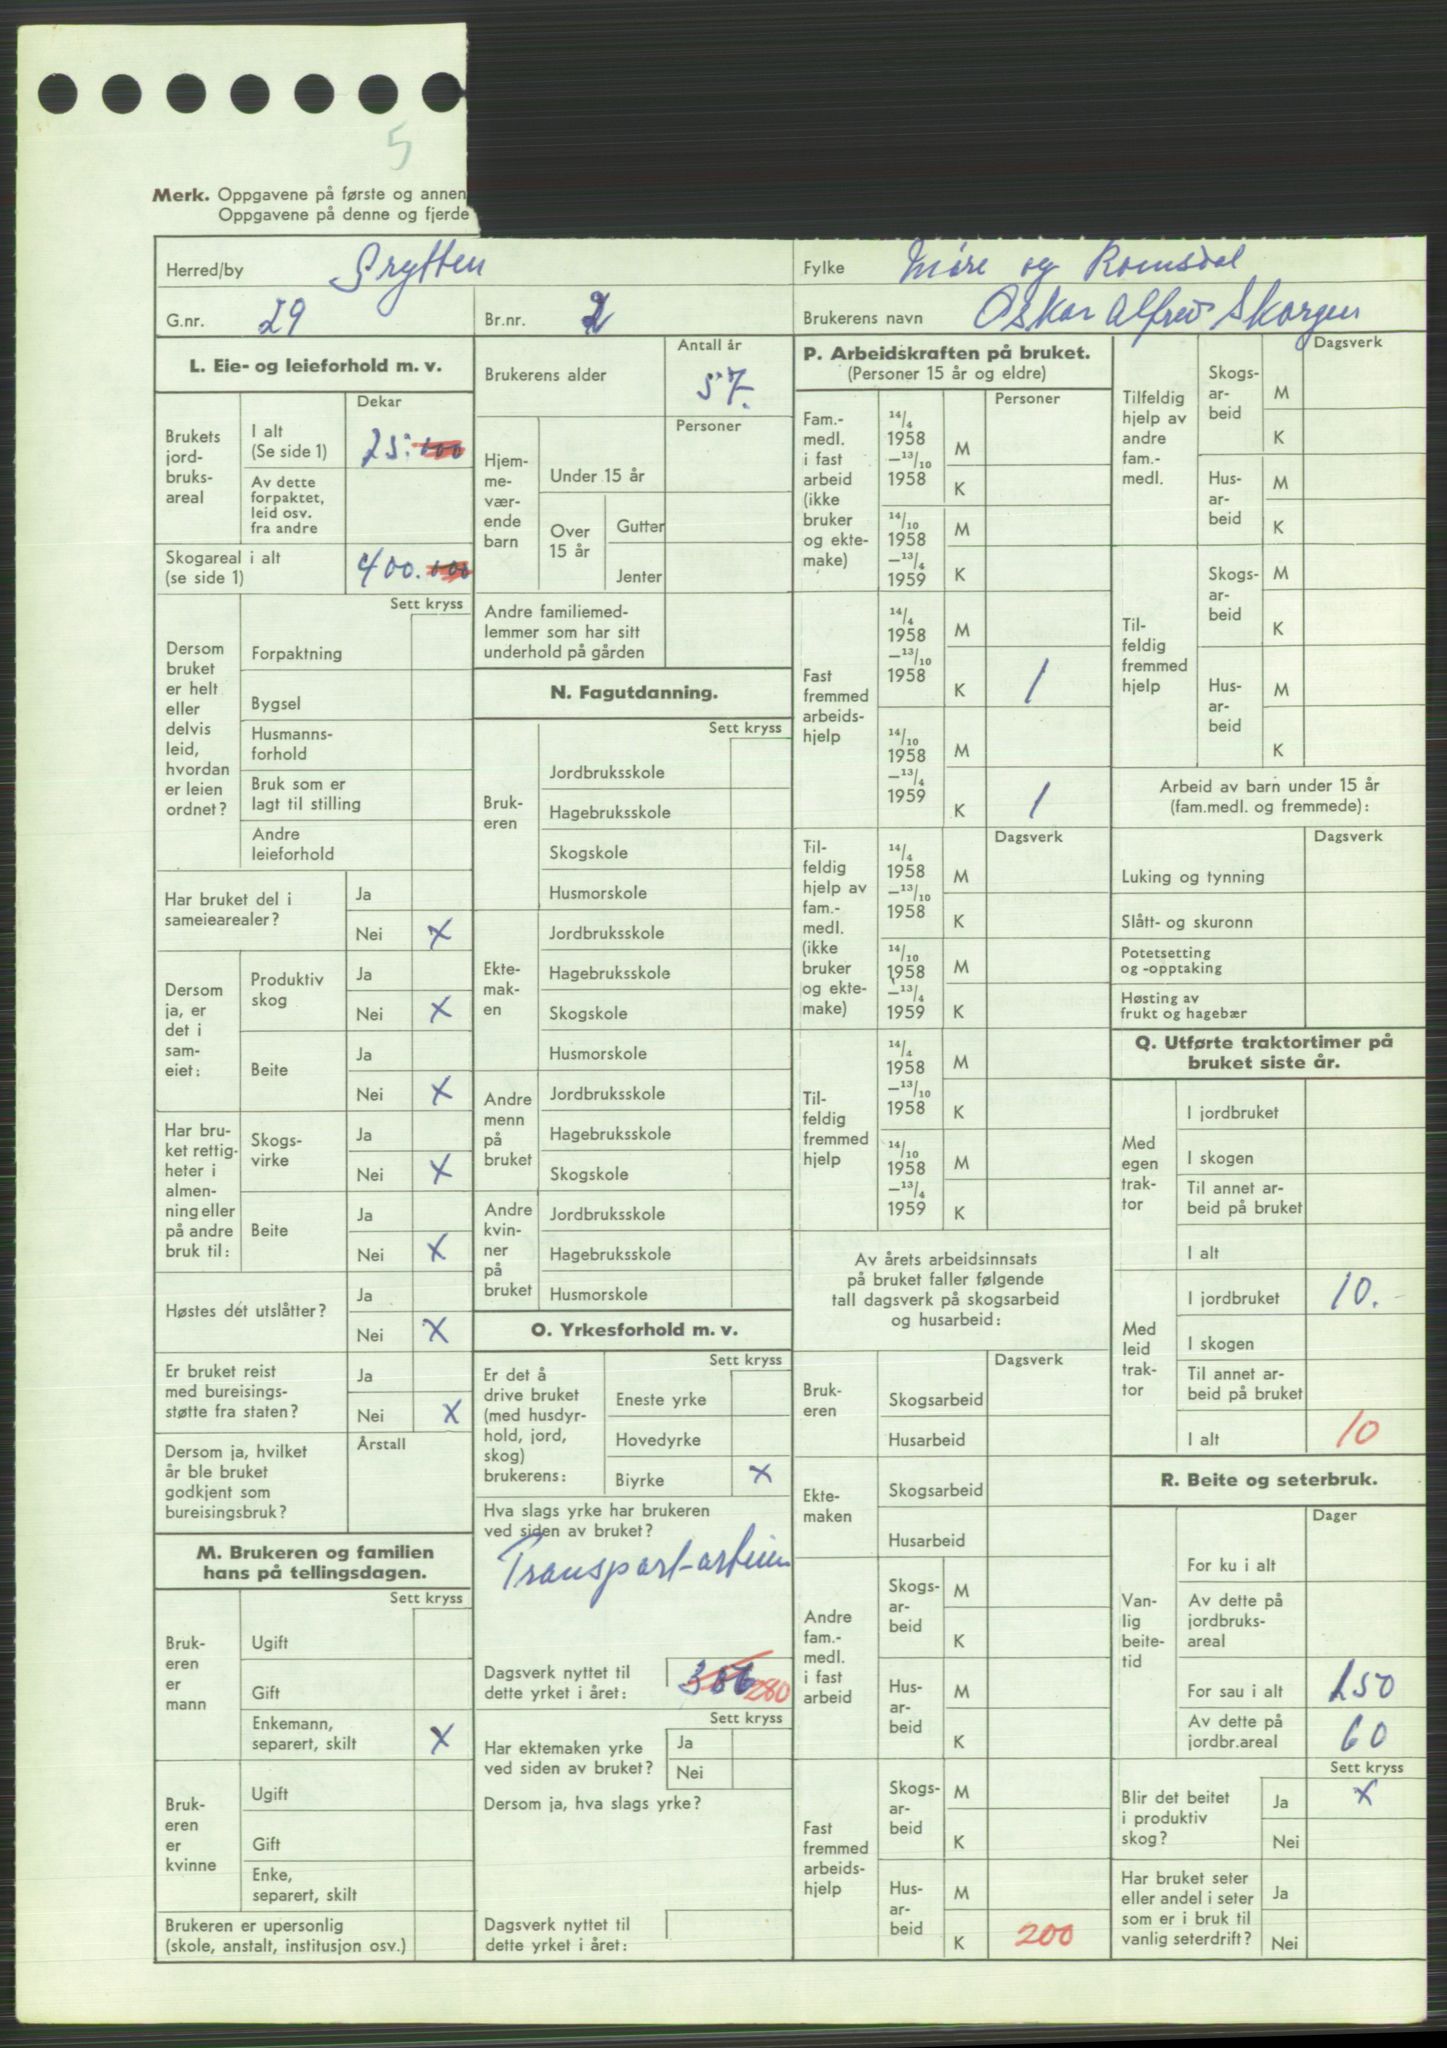 5
Merk. Oppgavene på første og annen
Oppgavene på denne og fjerde
Herred/by Grytten
Fylke Møre og Romsdal
G.nr. 29
Br.nr. 2
Brukerens navn Oskar Alfred Skorgen
L. Eie- og leieforhold m. v.
Dekar
Brukets jord- bruks- areal
I alt (Se side 1) 25.000
Av dette forpaktet, leid osv. fra andre
Skogareal i alt (se side 1) 400.000
Sett kryss
Dersom bruket er helt eller delvis leid, hvordan er leien ordnet?
Forpaktning
Bygsel
Husmanns- forhold
Bruk som er lagt til stilling
Andre leieforhold
Har bruket del i sameiearealer?
Ja
Nei X
Dersom ja, er det i sam- eiet:
Produktiv skog
Ja
Nei X
Beite
Ja
Nei X
Har bru- ket rettig- heter i almen- ning eller på andre bruk til:
Skogs- virke
Ja
Nei X
Beite
Ja
Nei X
Høstes det utslåtter?
Ja
Nei X
Er bruket reist med bureisings- støtte fra staten?
Ja
Nei X
Dersom ja, hvilket år ble bruket godkjent som bureisingsbruk?
Årstall
M. Brukeren og familien hans på tellingsdagen.
Sett kryss
Bruk- eren er mann
Ugift
Gift
Enkemann, separert, skilt X
Bruk- eren er kvinne
Ugift
Gift
Enke, separert, skilt
Brukeren er upersonlig (skole, anstalt, institusjon osv.)
Antall år
Brukerens alder 57.
Personer
Hjem- me- vær- ende barn
Under 15 år
Over 15 år
Gutter
Jenter
Andre familiemed- lemmer som har sitt underhold på gården
N. Fagutdanning.
Sett kryss
Bruk- eren
Jordbruksskole
Hagebruksskole
Skogskole
Husmorskole
Ekte- mak- en
Jordbruksskole
Hagebruksskole
Skogskole
Husmorskole
Andre menn på bruket
Jordbruksskole
Hagebruksskole
Skogskole
Andre kvin- ner på bruket
Jordbruksskole
Hagebruksskole
Husmorskole
O. Yrkesforhold m. v.
Sett kryss
Er det å drive bruket (med husdyr- hold, jord, skog) brukerens:
Eneste yrke
Hovedyrke
Biyrke X
Hva slags yrke har brukeren ved siden av bruket?
Transport-arbeier
Dagsverk nyttet til dette yrket i året: 306 280
Sett kryss
Har ektemaken yrke ved siden av bruket?
Ja
Nei
Dersom ja, hva slags yrke?
Dagsverk nyttet til dette yrket i året:
P. Arbeidskraften på bruket.
(Personer 15 år og eldre)
Personer
Fam.- medl. i fast arbeid (ikke bruker og ekte- make)
14/4 1958 –13/10 1958
M
K
14/10 1958 –13/4 1959
M
K
Fast fremmed arbeids- hjelp
14/4 1958 –13/10 1958
M
K 1
14/10 1958 –13/4 1959
M
K 1
Dagsverk
Til- feldig hjelp av fam.- medl. (ikke bruker og ekte- make)
14/4 1958 –13/10 1958
M
K
14/10 1958 –13/4 1959
M
K
Til- feldig fremmed hjelp
14/4 1958 –13/10 1958
M
K
14/10 1958 –13/4 1959
M
K
Av årets arbeidsinnsats på bruket faller følgende tall dagsverk på skogsarbeid og husarbeid:
Dagsverk
Bruk- eren
Skogsarbeid
Husarbeid
Ekte- maken
Skogsarbeid
Husarbeid
Andre fam.- medl. i fast arbeid
Skogs- ar- beid
M
K
Hus- ar- beid
M
K
Fast fremmed arbeids- hjelp
Skogs- ar- beid
M
K
Hus- ar- beid
M
K 200
Dagsverk
Tilfeldig hjelp av andre fam.- medl.
Skogs- ar- beid
M
K
Hus- ar- beid
M
K
Til- feldig fremmed hjelp
Skogs- ar- beid
M
K
Hus- ar- beid
M
K
Arbeid av barn under 15 år (fam.medl. og fremmede):
Dagsverk
Luking og tynning
Slått- og skuronn
Potetsetting og -opptaking
Høsting av frukt og hagebær
Q. Utførte traktortimer på bruket siste år.
Med egen trak- tor
I jordbruket
I skogen
Til annet ar- beid på bruket
I alt
Med leid trak- tor
I jordbruket 10.-
I skogen
Til annet ar- beid på bruket
I alt 10
R. Beite og seterbruk.
Dager
Van- lig beite- tid
For ku i alt
Av dette på jordbruks- areal
For sau i alt 150
Av dette på jordbr.areal 60
Sett kryss
Blir det beitet i produktiv skog?
Ja X
Nei
Har bruket seter eller andel i seter som er i bruk til vanlig seterdrift?
Ja
Nei